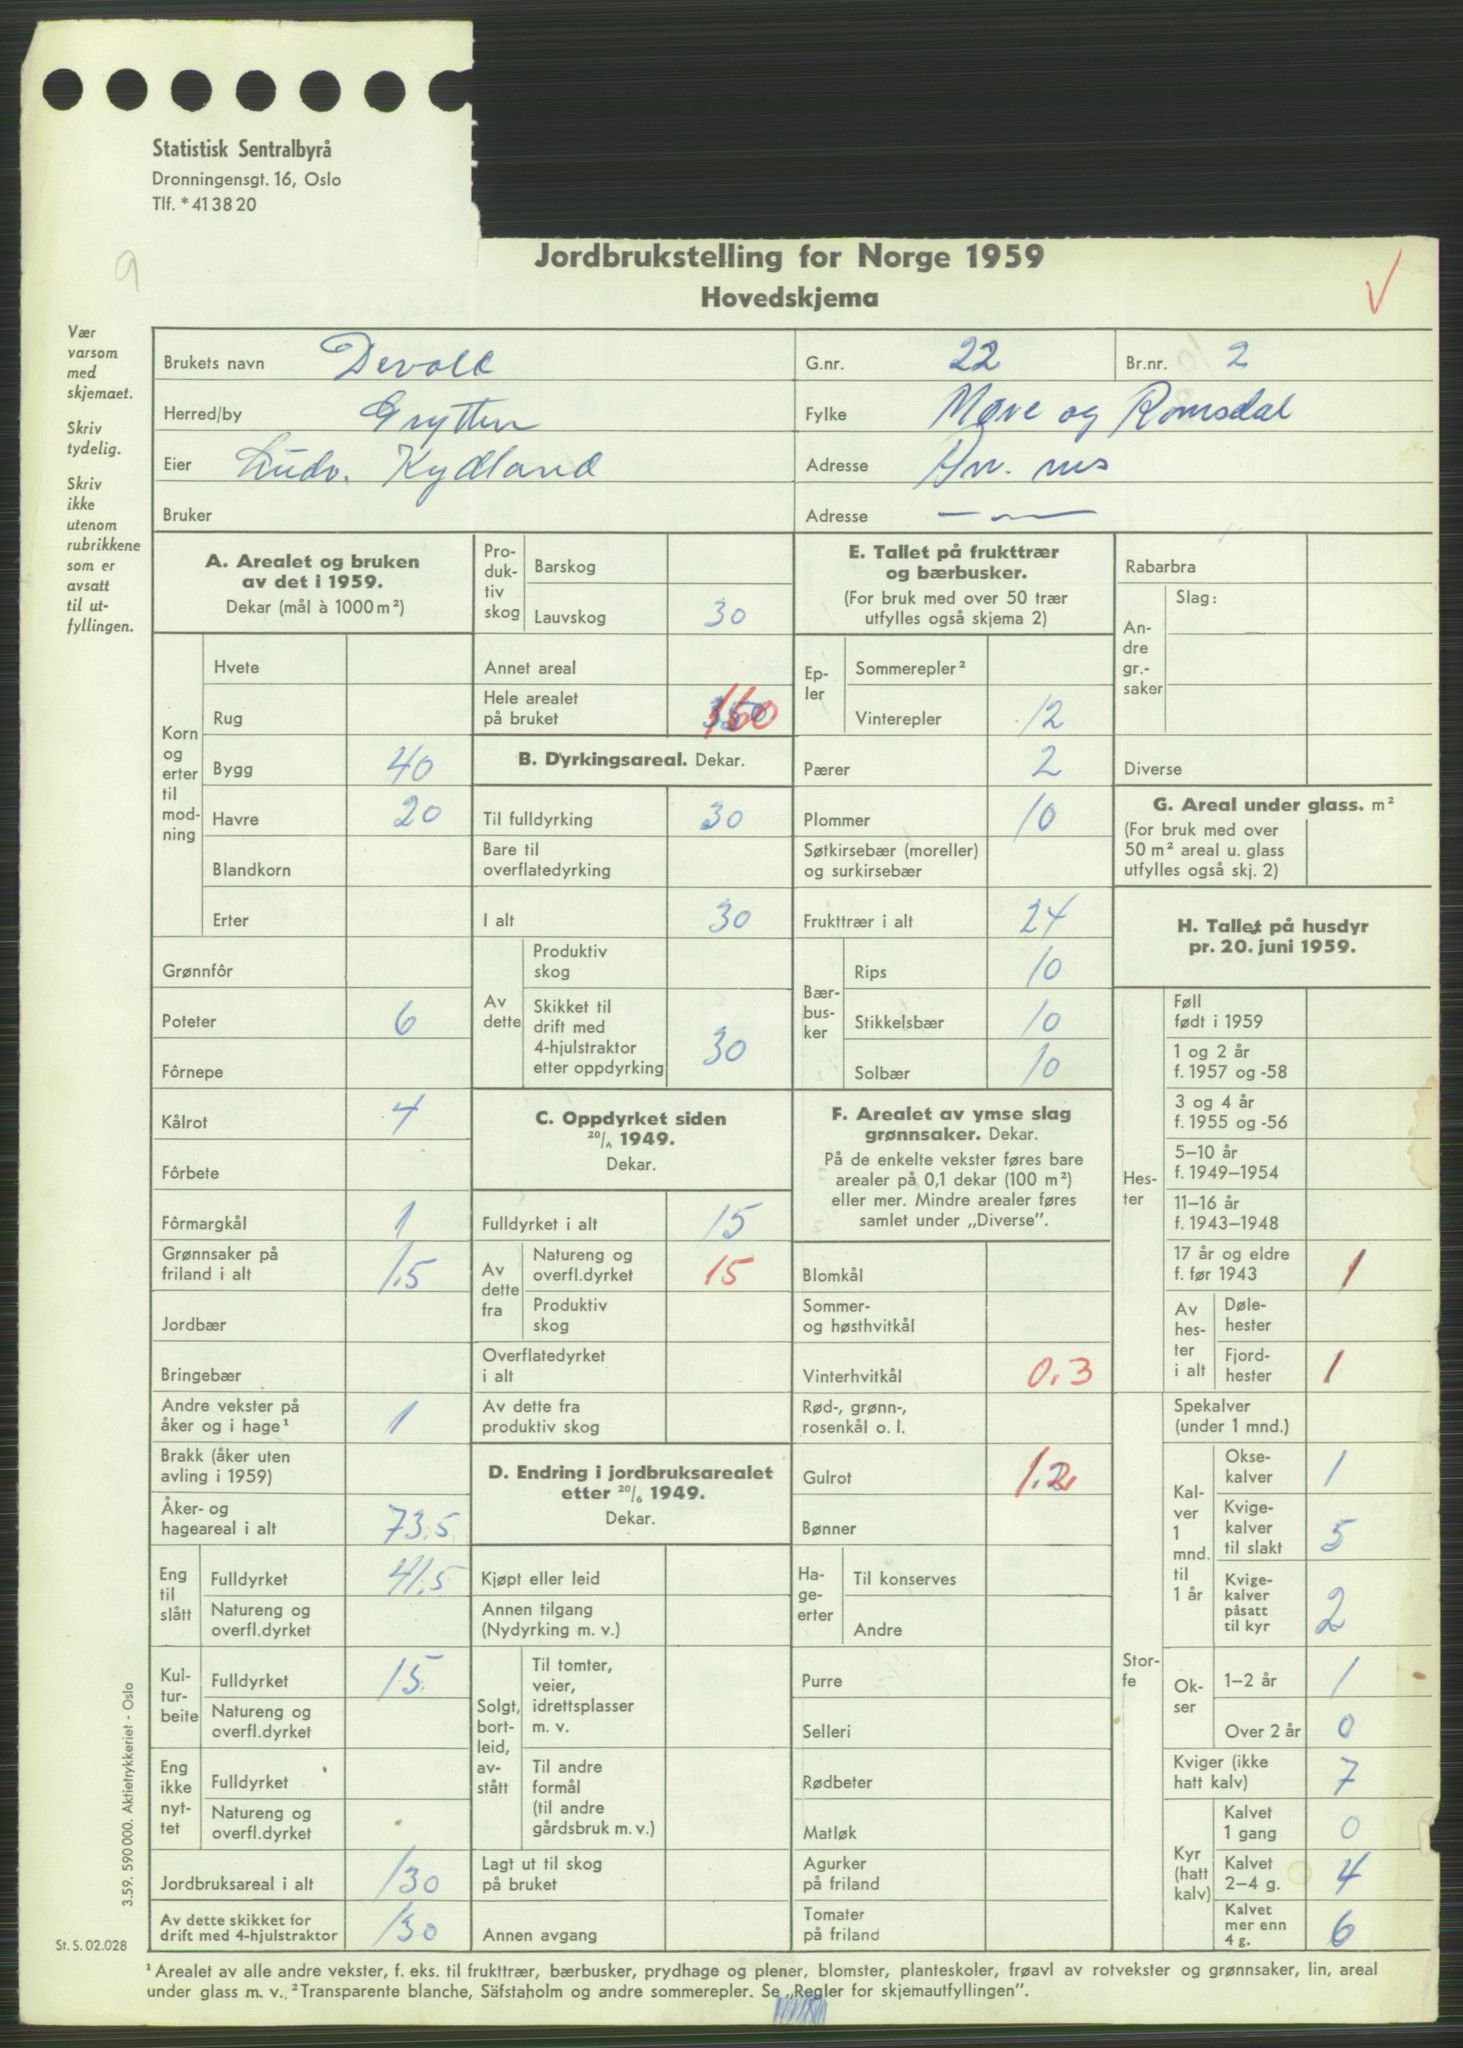 Statistisk Sentralbyrå
Dronningensgt. 16, Oslo
Tlf. * 41 38 20
9
Jordbrukstelling for Norge 1959
Hovedskjema
Vær
varsom
med
skjemaet.
Skriv
tydelig.
Skriv
ikke
utenom
rubrikkene
som er
avsatt
til ut-
fyllingen.
Brukets navn Devold G.nr. 22 Br.nr. 2
Herred/by Grytten Fylke Møre og Romsdal
Eier Ludv. Kydland Adresse
Bruker Adresse — " —
A. Arealet og bruken
av det i 1959.
Dekar (mål à 1000 m²)
Korn
og
erter
til
mod-
ning
Hvete
Rug
Bygg 40
Havre 20
Blandkorn
Erter
Grønnfôr
Poteter 6
Fôrnepe
Kålrot 4
Fôrbete
Fôrmargkål 1
Grønnsaker på
friland i alt 1.5
Jordbær
Bringebær
Andre vekster på
åker og i hage¹ 1
Brakk (åker uten
avling i 1959)
Åker- og
hageareal i alt 73.5
Eng
til
slått
Fulldyrket 41.5
Natureng og
overfl.dyrket
Kul-
tur-
beite
Fulldyrket 15
Natureng og
overfl.dyrket
Eng
ikke
nyt-
tet
Fulldyrket
Natureng og
overfl.dyrket
Jordbruksareal i alt 130
Av dette skikket for
drift med 4-hjulstraktor 130
Pro-
duk-
tiv
skog
Barskog
Lauvskog 30
Annet areal
Hele arealet
på bruket 160
B. Dyrkingsareal. Dekar.
Til fulldyrking 30
Bare til
overflatedyrking
I alt 30
Av
dette
Produktiv
skog
Skikket til
drift med
4-hjulstraktor
etter oppdyrking 30
C. Oppdyrket siden
20/6 1949.
Dekar.
Fulldyrket i alt 15
Av
dette
fra
Natureng og
overfl.dyrket 15
Produktiv
skog
Overflatedyrket
i alt
Av dette fra
produktiv skog
D. Endring i jordbruksarealet
etter 20/6 1949.
Dekar.
Kjøpt eller leid
Annen tilgang
(Nydyrking m. v.)
Solgt,
bort-
leid,
av-
stått
Til tomter,
veier,
idrettsplasser
m. v.
Til andre
formål
(til andre
gårdsbruk m. v.)
Lagt ut til skog
på bruket
Annen avgang
E. Tallet på frukttrær
og bærbusker.
(For bruk med over 50 trær
utfylles også skjema 2)
Ep-
ler
Sommerepler²
Vinterepler 12
Pærer 2
Plommer 10
Søtkirsebær (moreller)
og surkirsebær
Frukttrær i alt 24
Bær-
bus-
ker
Rips 10
Stikkelsbær 10
Solbær 10
F. Arealet av ymse slag
grønnsaker. Dekar.
På de enkelte vekster føres bare
arealer på 0,1 dekar (100 m²)
eller mer. Mindre arealer føres
samlet under „Diverse”.
Blomkål
Sommer-
og høsthvitkål
Vinterhvitkål 0.3
Rød-, grønn-,
rosenkål o. l.
Gulrot 1.2
Bønner
Ha-
ge-
erter
Til konserves
Andre
Purre
Selleri
Rødbeter
Matløk
Agurker
på friland
Tomater
på friland
Rabarbra
An-
dre
gr.-
saker
Slag:
Diverse
G. Areal under glass. m²
(For bruk med over
50 m² areal u. glass
utfylles også skj. 2)
H. Tallet på husdyr
pr. 20. juni 1959.
Hes-
ter
Føll
født i 1959
1 og 2 år
f. 1957 og -58
3 og 4 år
f. 1955 og -56
5–10 år
f. 1949–1954
11–16 år
f. 1943–1948
17 år og eldre
f. før 1943 1
Av
hes-
ter
i alt
Døle-
hester
Fjord-
hester 1
Stor-
fe
Spekalver
(under 1 mnd.)
Kal-
ver
1
mnd.
til
1 år
Okse-
kalver 1
Kvige-
kalver
til slakt 5
Kvige-
kalver
påsatt
til kyr 2
Ok-
ser
1–2 år 1
Over 2 år 0
Kviger (ikke
hatt kalv) 7
Kyr
(hatt
kalv)
Kalvet
1 gang 0
Kalvet
2–4 g. 4
Kalvet
mer enn
4 g. 6
3.59. 590 000. Aktietrykkeriet - Oslo
St. S. 02.028
¹ Arealet av alle andre vekster, f. eks. til frukttrær, bærbusker, prydhage og plener, blomster, planteskoler, frøavl av rotvekster og grønnsaker, lin, areal
under glass m. v. ² Transparente blanche, Säfstaholm og andre sommerepler. Se „Regler for skjemautfyllingen”.